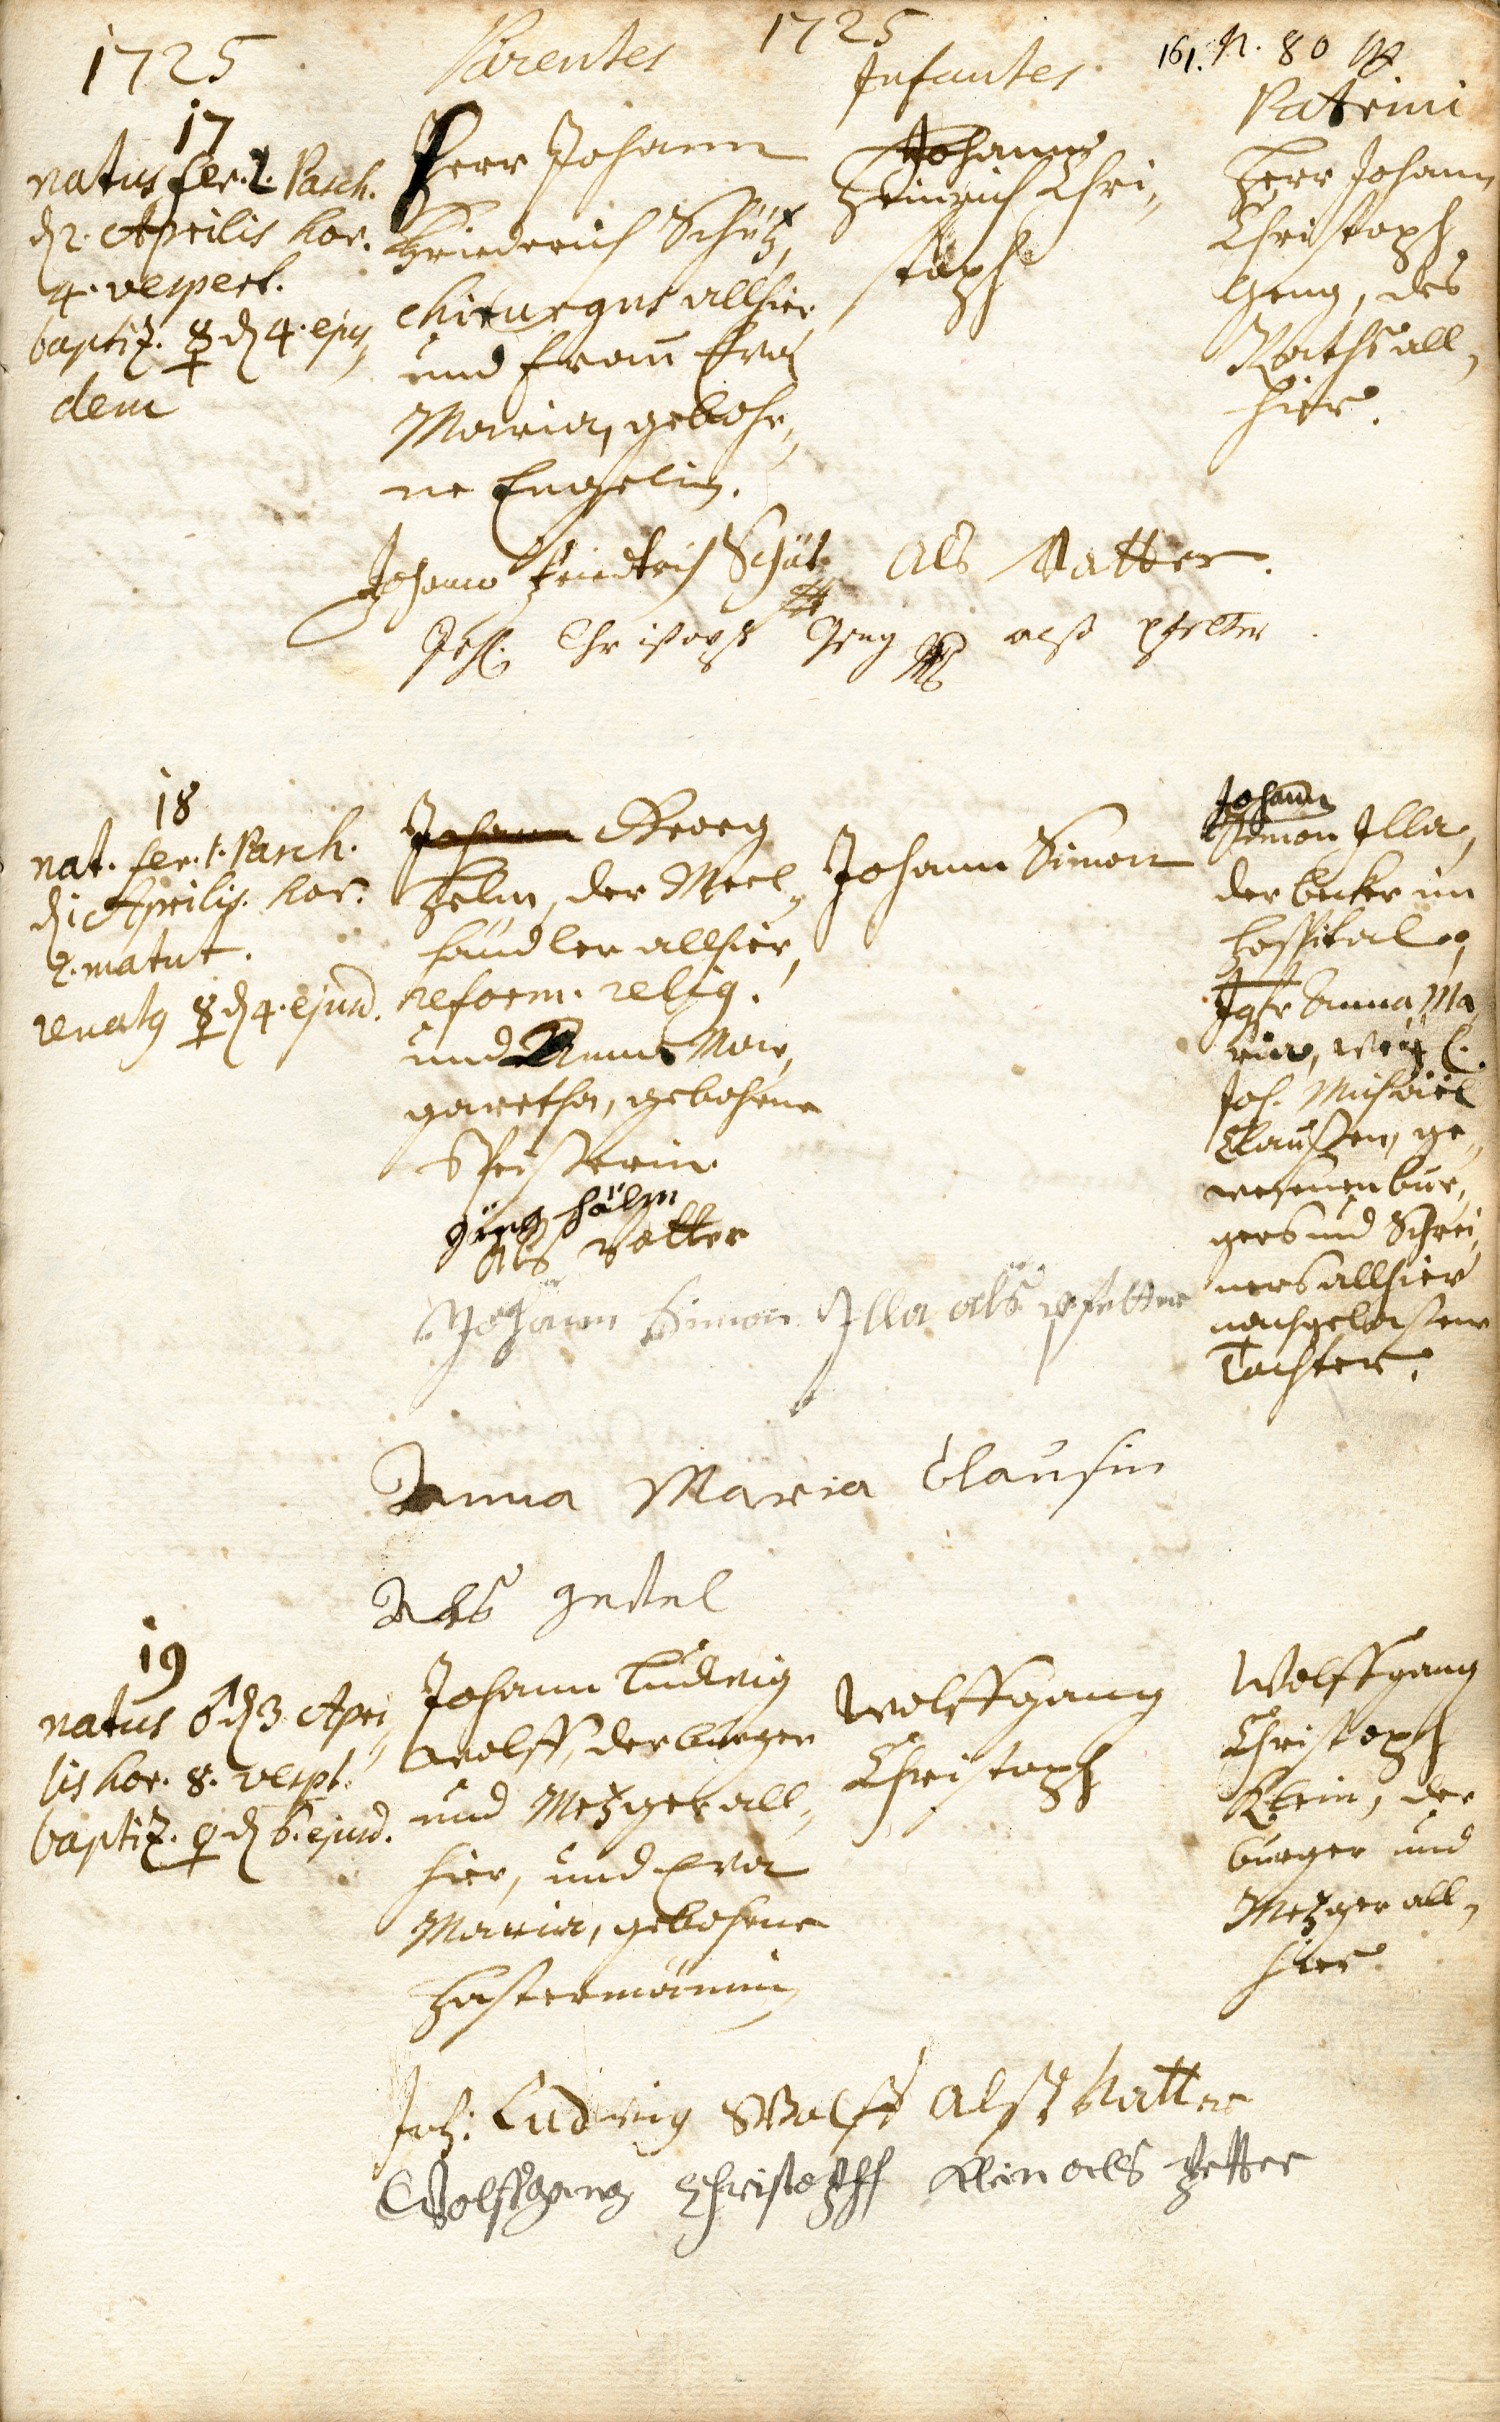 1725
Parentes
1725
Infantes.
161. N. 80
Patrini
17
natus fer. 2. Pasch.
d 2. Aprilis hor.
4. vespert.
baptiz. ☿ d 4. ejus,
dem
Herr Johann
Friederich Schütz,
chirurgus allhier
und Frau Eva
Maria, gebohr,
ne Engelin.
Johann
Heinrich Chri,
stoph
Herr Johann
Christoph
Geng, des
Raths all,
hier.
Johann Friedrich Schütz Als Vatter.
Joh. Christoph Geng alß pfetter
18
nat. fer. 1. Pasch.
d 1 Aprilis. hor.
2. matut.
renatg ☿ d 4. ejusd.
Johann Georg
Helm, der Meel,
händler allhier,
reform. relig.
und Anna Mar,
garetha, gebohrne
görg hälm
Als vatter
Johann Simon
Johann
Simon Illa,
der becker im
Hospital,
Jgfr Anna Ma
ria, weyl.
Joh. Michael
Claußen, ge,
wesenen bur,
gers und Schrei,
ners allhier
nachgelaßene
Tochter.
Johann Simon Illa als pfetter
Anna Maria Clausin
Als gedel
19
natus ♂ d 3 Apri,
lis hor. 8. vespt.
baptiz. ♀ d 6. ejusd.
Johann Ludwig
Wolff, der burger
und Metzger all,
hier, und Eva
Maria, gebohrne
Wolffgang
Christoph
Wolffgang
Christoph
Klein, der
burger und
Metzger all,
hier.
Joh: Ludwig Wolff Alß Vatter
Wolffgang Christophh Klein als Petter